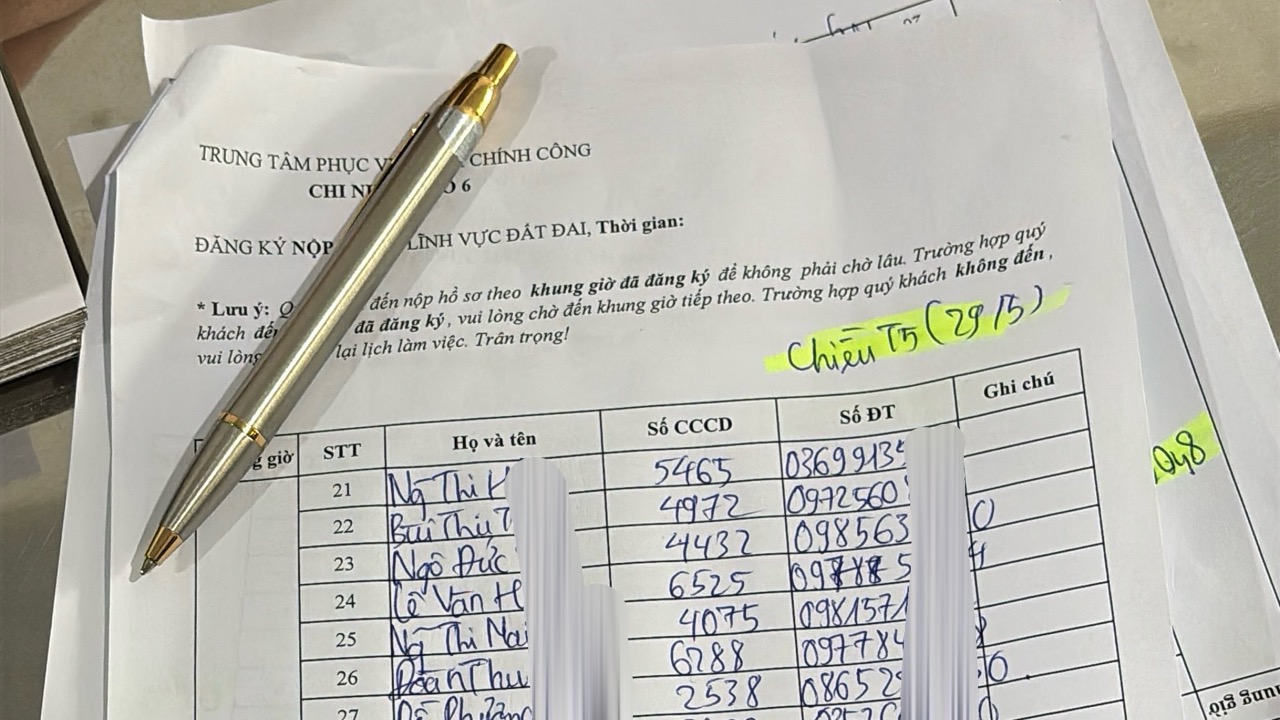 TRUNG TÂM PHỤC CHÍNH CÔNG
CHI 6
ĐĂNG KÝ NỘP LĨNH VỰC ĐẤT ĐAI, Thời gian:
* Lưu ý: đến nộp hồ sơ theo khung giờ đã đăng ký để không phải chờ lâu. Trường hợp quý
khách đến đã đăng ký, vui lòng chờ đến khung giờ tiếp theo. Trường hợp quý khách không đến,
vui lòng lại lịch làm việc. Trân trọng!
Chiều T5 (29/5)
giờ STT Họ và tên Số CCCD Số ĐT Ghi chú
21 Ng Thi H 5465 03699135
22 Bùi Thu T 4972 0972560
23 Ngô Đức 4432 098563 0
24 Lê Văn H 6525 5 4
25 Ng Thi Mai 4075 0981571
26 Đoàn Thu 6288 097784
27 2538 08652 0
048